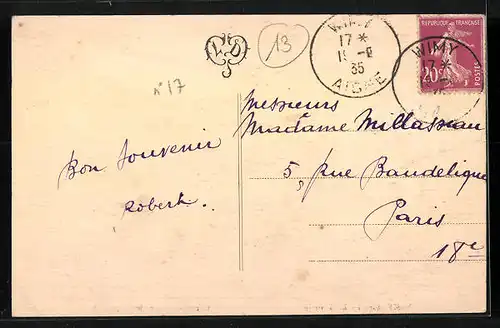 LD
13
n° 17
WIMY
17 *
35
AISNE
REPUBLIQUE FRANÇAISE
POSTES
20c
WIMY
17 *
Messieurs
Madame Millasseau
5, Rue Baudelique
Paris
18e
Bon Souvenir
Robert.